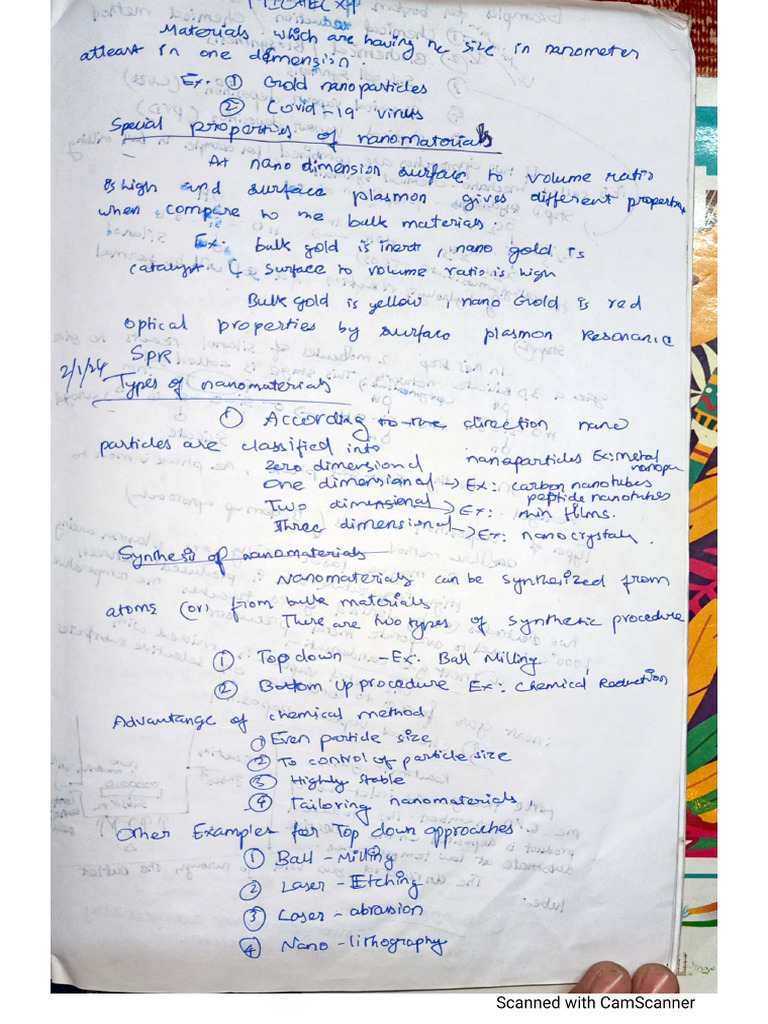 Materials which are having the size in nanometer
atleast in one dimension
Ex: ① Gold nanoparticles
② Covid-19 virus
Special properties of nanomaterials
At nano dimension surface to volume ratio
is high and surface plasmon gives different properties
when compare to the bulk materials.
Ex: bulk gold is inert, nano gold is
catalyst. surface to volume ratio is high
Bulk gold is yellow, nano Gold is red
optical properties by surface plasmon Resonance
SPR.
2/1/24
Types of nanomaterials
① According to the direction nano
particles are classified into
zero dimensional nanoparticles Ex: metal
One dimensional → Ex: carbon nanotubes
peptide nanotubes
Two dimensional → Ex: thin films.
Three dimensional → Ex: nanocrystals.
Synthesis of nanomaterials
Nanomaterials can be synthesized from
atoms (or) from bulk materials
There are two types of synthetic procedure
① Top down - Ex: Ball Milling
② Bottom up procedure Ex: Chemical Reduction
Advantange of chemical method
① Even particle size
② To control of particle size
③ Highly stable
④ Tailoring nanomaterials
Other Examples for Top down approaches
① Ball - Milling
② Laser - Etching
③ Laser - abrassion
④ Nano - lithography
Scanned with CamScanner